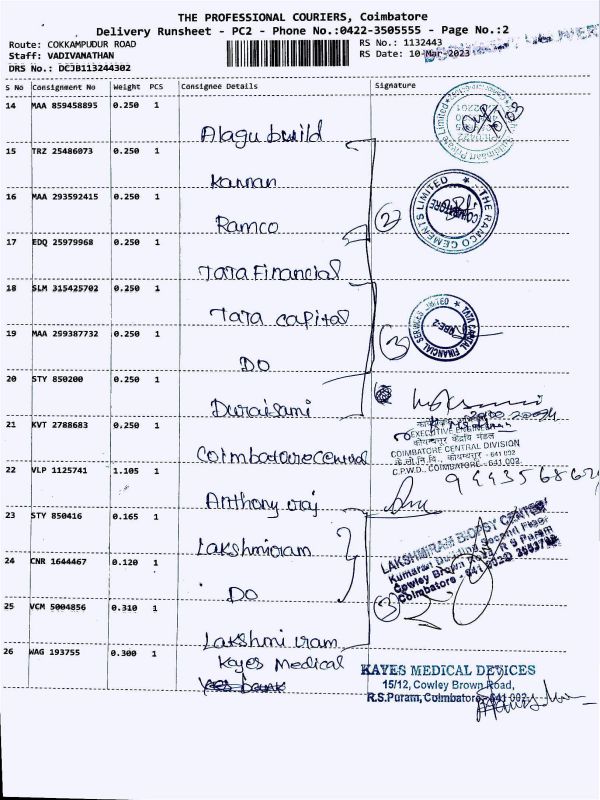 THE PROFESSIONAL COURIERS, Coimbatore
Delivery Runsheet - PC2 - Phone No.:0422-3505555 - Page No.:2
Route: COKKAMPUDUR ROAD
RS No.: 1132443
Staff: VADIVANATHAN
RS Date: 10-Mar-2023
DRS No.: DCJB113244302
S No Consignment No Weight PCS Consignee Details Signature
14 MAA 859458895 0.250 1
Alagu build
15 TRZ 25486073 0.250 1
Kannan
16 MAA 293592415 0.250 1
Ramco
THE RAMCO CEMENTS LIMITED
COIMBATORE
2
17 EDQ 25979968 0.250 1
Tata Financial
18 SLM 315425702 0.250 1
Tata capital
TATA CAPITAL FINANCIAL SERVICES LIMITED
3
19 MAA 299387732 0.250 1
DO
20 STY 850200 0.250 1
Duraisami
21 KVT 2788683 0.250 1
Coimbatore central
EXECUTIVE ENGINEER
COIMBATORE CENTRAL DIVISION
C.P.W.D., COIMBATORE - 641 002.
22 VLP 1125741 1.105 1
Anthony raj
23 STY 850416 0.165 1
Lakshmiram
LAKSHMIRAM BIOPSY CENTER
Kumaran Building Second Floor
Cowley Brown Road, R S Puram
Coimbatore - 641 002.
3
24 CNR 1644467 0.120 1
DO
25 VCM 5004856 0.310 1
Lakshmi ram
26 WAG 193755 0.300 1
Kayes Medical
KAYES MEDICAL DEVICES
15/12, Cowley Brown Road,
R.S.Puram, Coimbatore - 641 002.